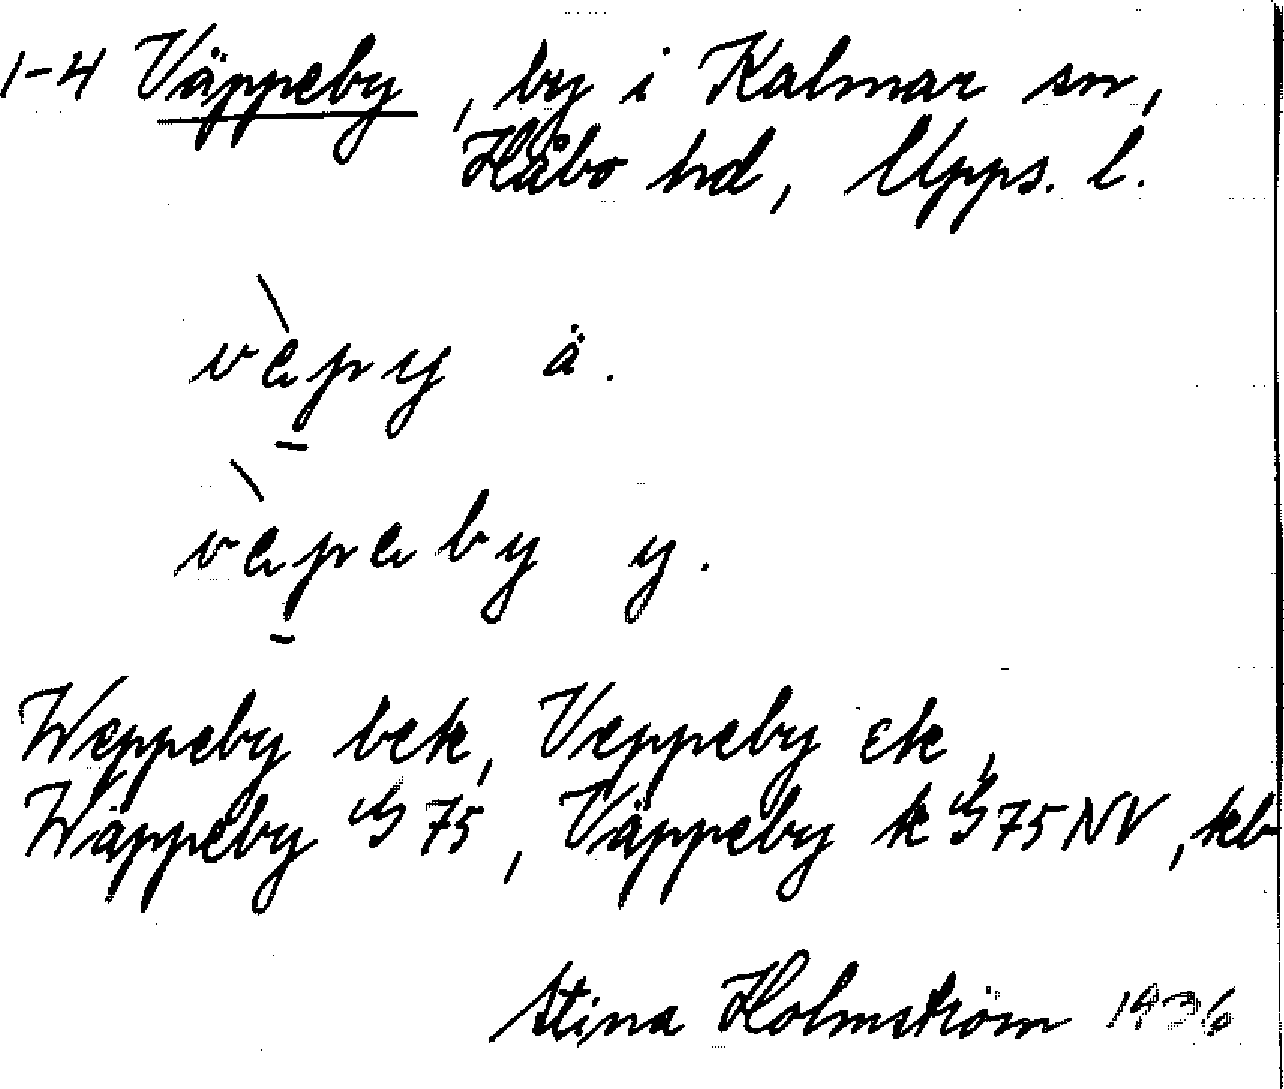 1-4 Väppeby, by i Kalmar sn,
Håbo hd, Upps. l.
vèpy ä.
vèpeby y.
Weppeby bek, Veppeby ek,
Wäppeby G 75, Väppeby k G 75 NV, kb
Stina Holmström 1936